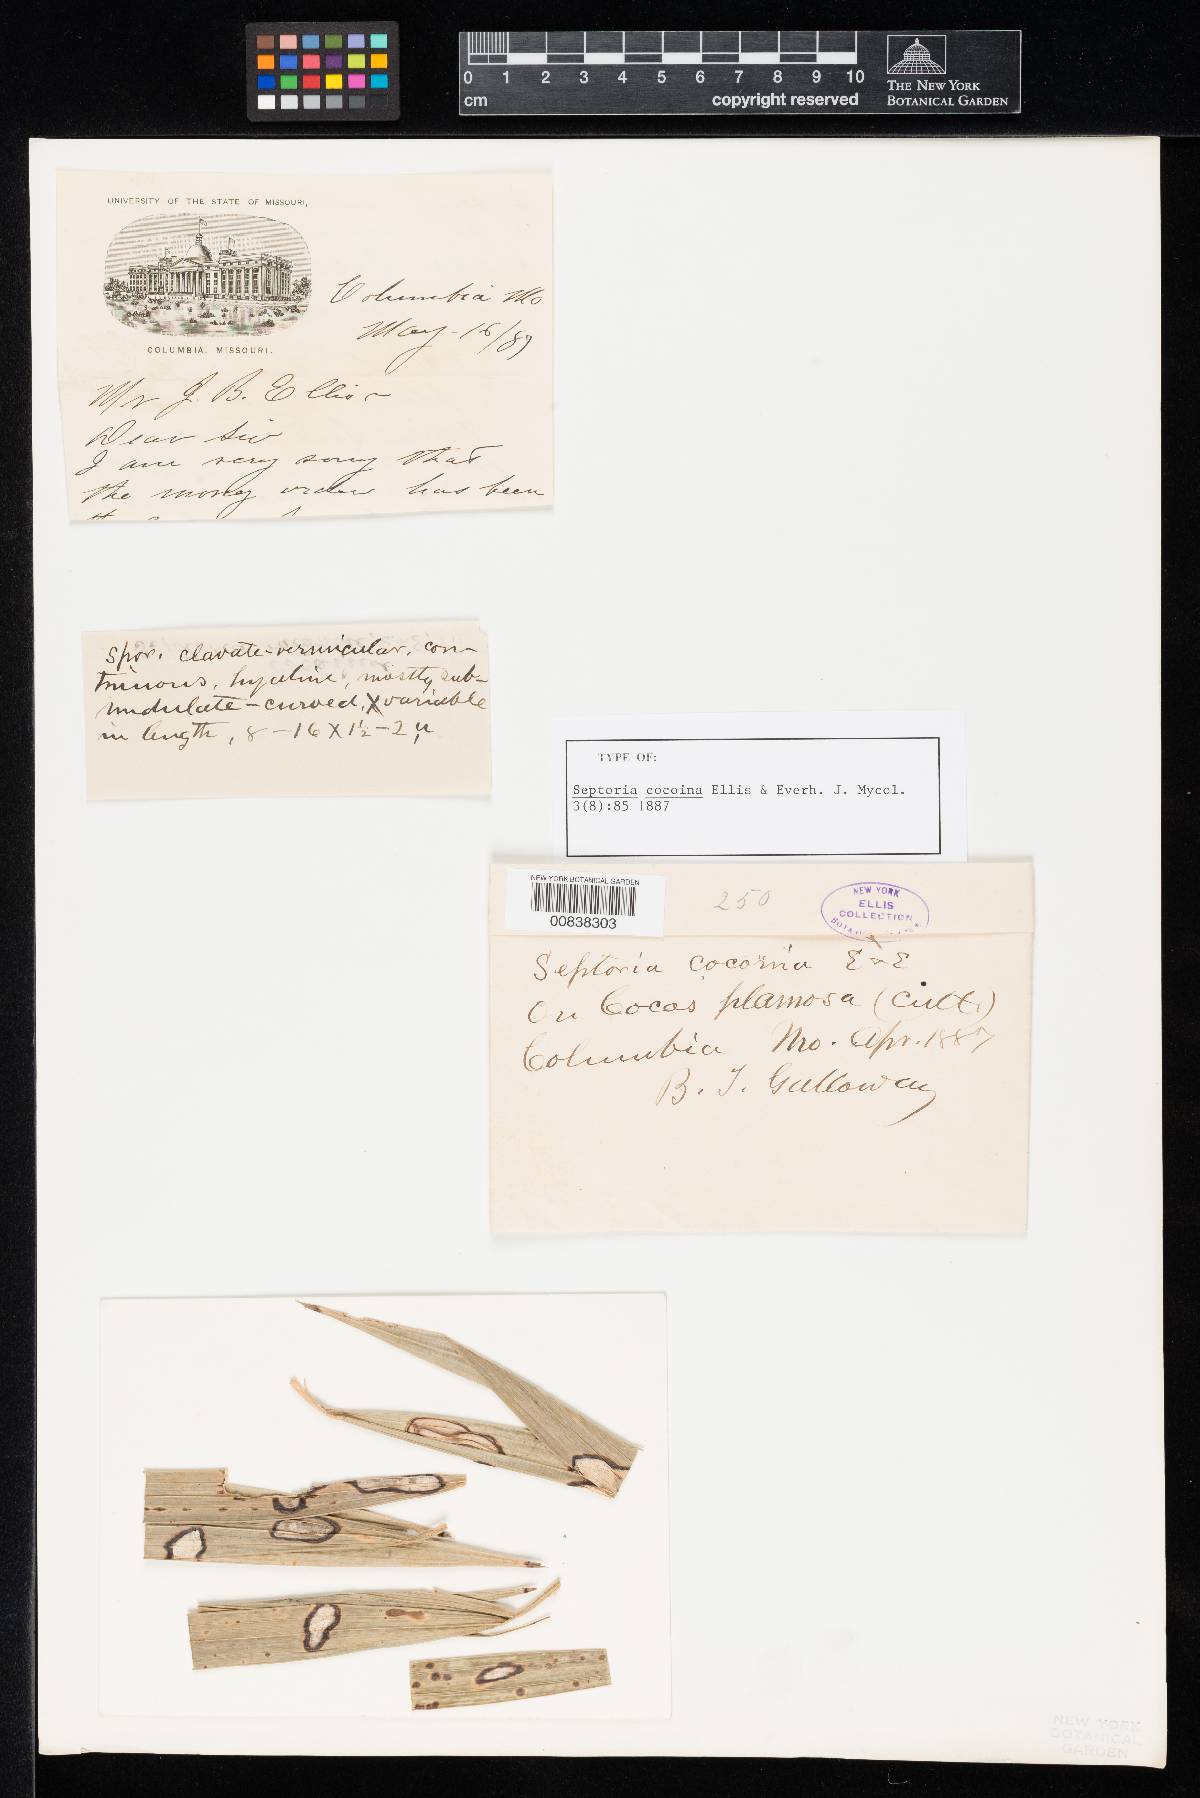 0 1 2 3 4 5 6 7 8 9 10
cm
copyright reserved
THE NEW YORK
BOTANICAL GARDEN
UNIVERSITY OF THE STATE OF MISSOURI,
COLUMBIA, MISSOURI.
Columbia Mo
May-16/87
Mr J. B. Ellis
Dear Sir
I am very sorry that
the money order has been
Spor. clavate-vermicular, con-
tinuous, hyaline, mostly sub-
undulate-curved, variable
in length, 8-16 X 1½-2 µ
TYPE OF:
Septoria cocoina Ellis & Everh. J. Mycol.
3(8):85 1887
NEW YORK BOTANICAL GARDEN
00838303
250
NEW YORK
ELLIS
COLLECTION
Septoria cocoina E & E
On Cocos plamosa (cult.)
Columbia Mo. Apr. 1887
B. T. Galloway
NEW YORK
BOTANICAL
GARDEN